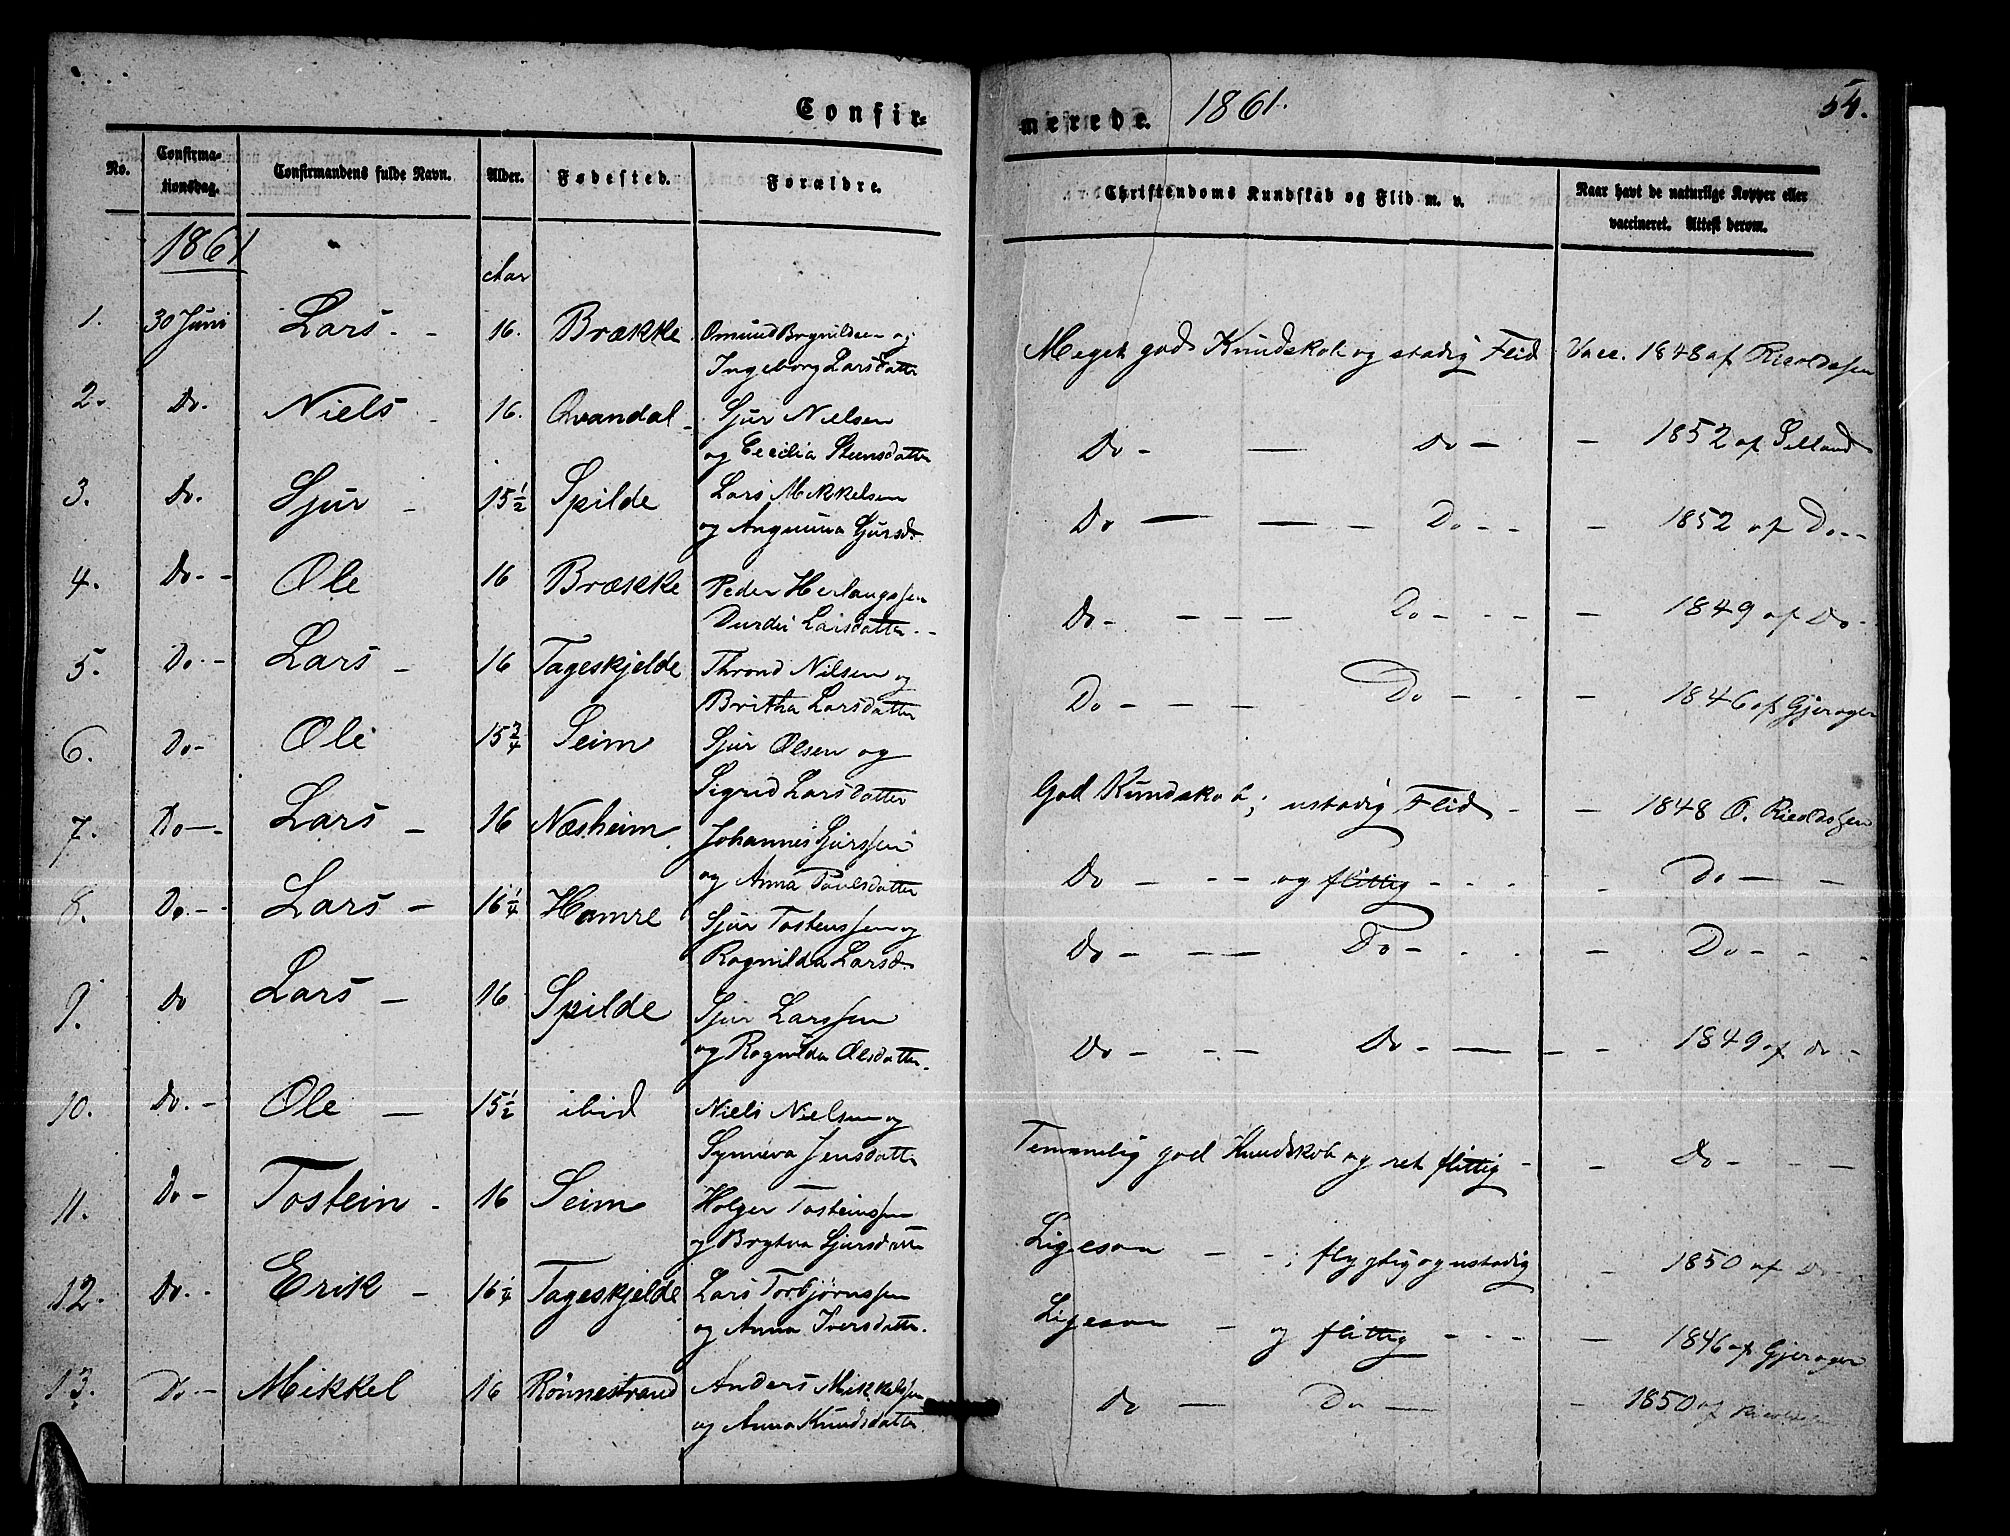 Confir- merede. 1861. 54.
No. Confirma-tionsdag. Confirmandens fulde Navn. Alder. Fødested. Forældre. Christendoms Kundskab og Flid m. v. Naar havt de naturlige Kopper eller vaccineret. Attest derom.
1861
Aar
1. 30 Juni Lars - 16. Brække Omund Brynildsen og Meget god Kundskab og stadig Flid Vacc. 1848 af Rieoldssen
Ingeborg Larsdatter
2. Do. Niels - 16. Qvandal - Sjur Nielsen Do - — Do - - 1852 af Selland
og Cecilia Steensdatter
3. Do. Sjur - 15½ Spilde Lars Mikkelsen Do — — - Do - - - 1852 af Do - -
og Angunna Sjursd.
4. Do - - Ole 16 Brække Peder Herlaugssen Do - - - - Do - - - - 1849 af Do -
Durdei Larsdatter - -
5. Do - - Lars - 16 Tageskjelde Thrond Nilsen og Do - - - Do - - - 1846 af Gjerager
Britha Larsdatter
6. Do - Ole 15¾ Seim Sjur Olsen og God Kundskab; ustadig Flid - - 1848 O. Rieoldssen
Sigrid Larsdatter
7. Do — - Lars - 16 Næsheim. Johannes Sjurssen Do - - - og flittig - - - - - Do - -
og Anna Poulsdatter
8. Do - - Lars - 16¼ Hamre Sjur Tostenssen og Do - - - Do - - - - Do - - -
Ragnilda Larsd.
9. Do Lars - 16 Spilde Sjur Larssen Do - - - Do - — - - 1849 af Do - -
og Ragnilda Olsdatter.
10. Do. - Ole — 15½ ibid Niels Nielsen og Temmelig god Kundskab og ret flittig - - Do - - -
Synneva Jensdatter
11. Do - Tostein - 16 Seim Holger Tosteinssen Ligesaa - - ; flygtig og ustadig - 1850 af Do - -
og Brytva Sjursdatter
12. Do - - Erik - 16¼ Tageskjelde Lars Torbjørnssen Ligesaa - og flittig - - - - 1846 af Gjerager
og Anna Iversdatter.
13. Do - Mikkel 16 Rønnestrand Anders Mikkelssen Do - Do - - 1850 af Rieoldssen
og Anna Knudsdatter.